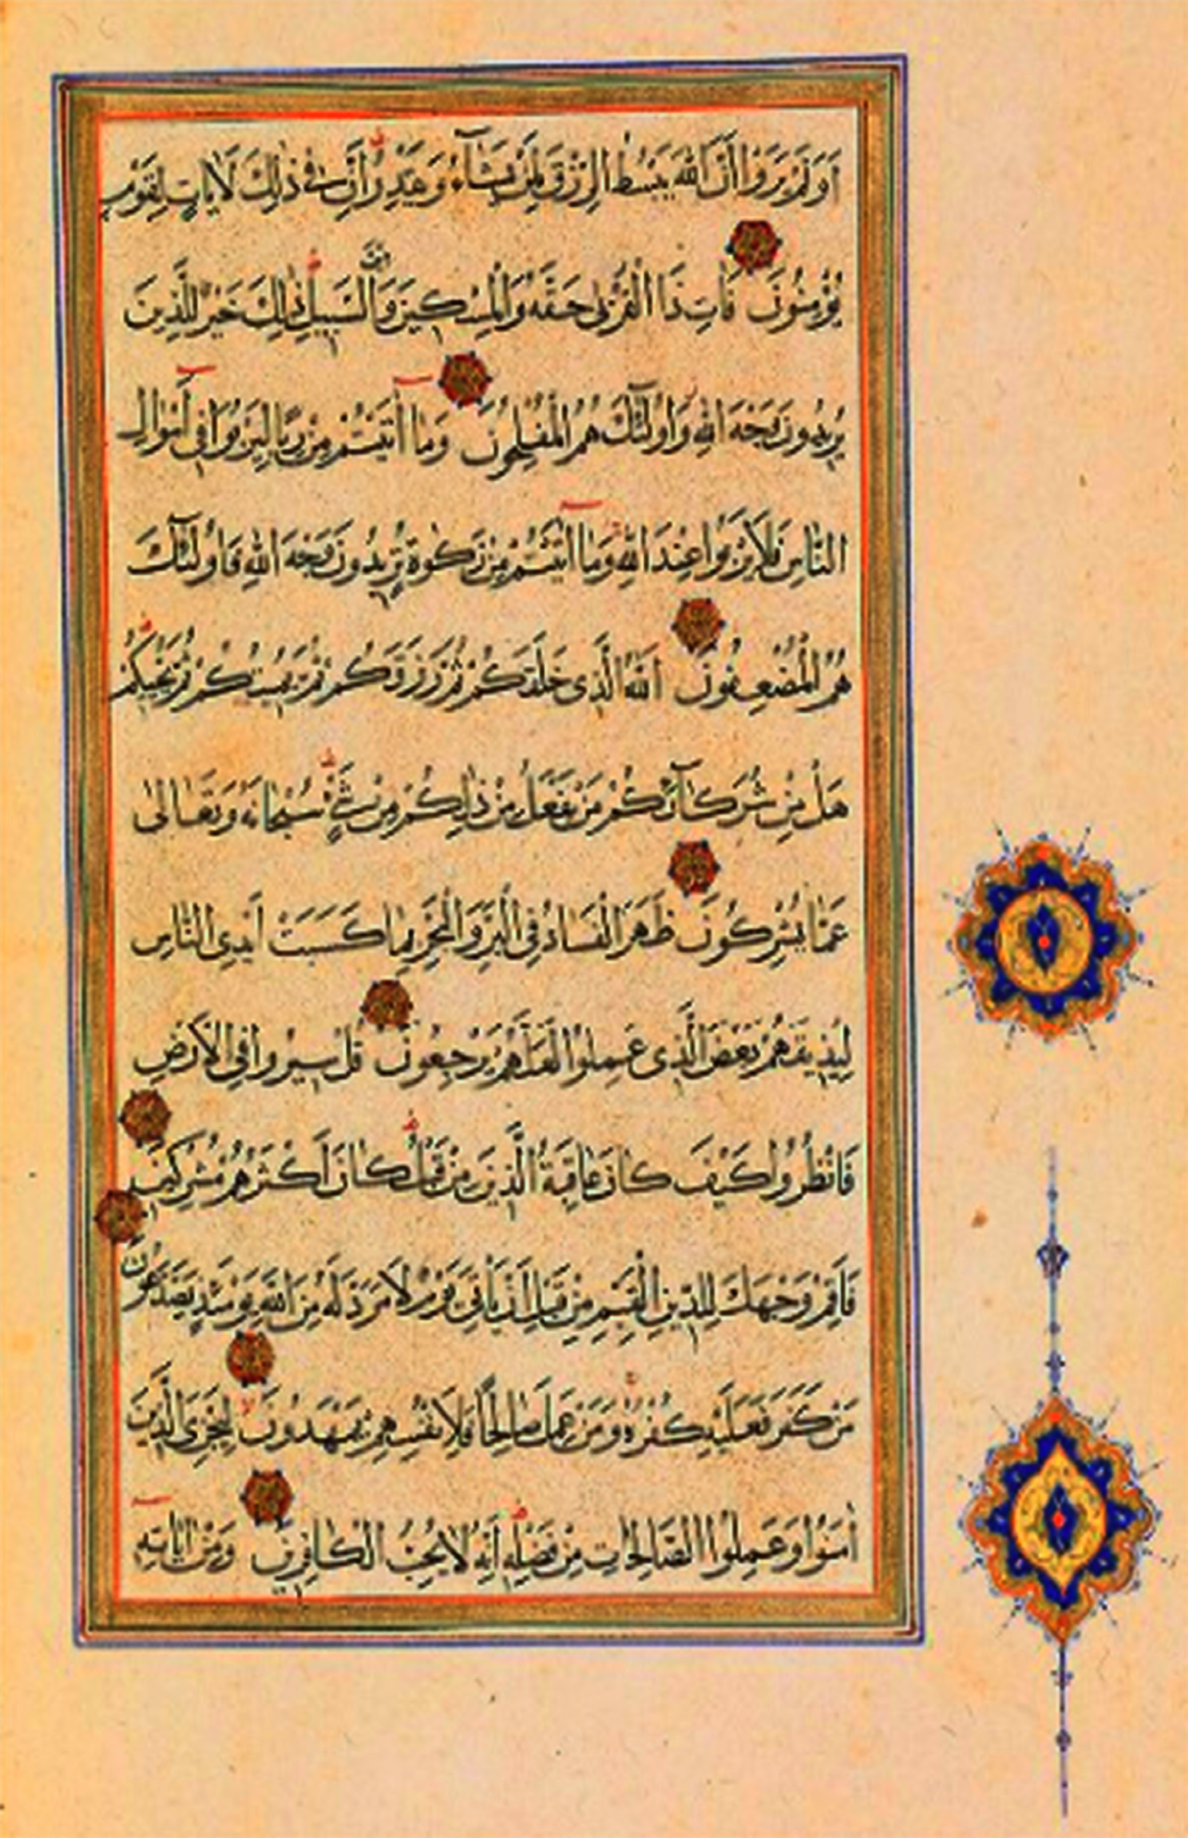 اَوَلَمْ يَرَوْا اَنَّ اللّٰهَ يَبْسُطُ الرِّزْقَ لِمَنْ يَشَآءُ وَيَقْدِرُ اِنَّ فِى ذٰلِكَ لَاٰيَاتٍ لِقَوْمٍ
يُؤْمِنُونَ فَاٰتِ ذَا الْقُرْبٰى حَقَّهُ وَالْمِسْكِينَ وَابْنَ السَّبِيلِ ذٰلِكَ خَيْرٌ لِلَّذِينَ
يُرِيدُونَ وَجْهَ اللّٰهِ وَاُولٰٓئِكَ هُمُ الْمُفْلِحُونَ وَمَٓا اٰتَيْتُمْ مِنْ رِبًا لِيَرْبُوَا فِٓى اَمْوَالِ
النَّاسِ فَلَا يَرْبُوا عِنْدَ اللّٰهِ وَمَٓا اٰتَيْتُمْ مِنْ زَكٰوةٍ تُرِيدُونَ وَجْهَ اللّٰهِ فَاُولٰٓئِكَ
هُمُ الْمُضْعِفُونَ اَللّٰهُ الَّذِى خَلَقَكُمْ ثُمَّ رَزَقَكُمْ ثُمَّ يُمِيتُكُمْ ثُمَّ يُحْيِيكُمْ
هَلْ مِنْ شُرَكَآئِكُمْ مَنْ يَفْعَلُ مِنْ ذٰلِكُمْ مِنْ شَىْءٍ سُبْحَانَهُ وَتَعَالٰى
عَمَّا يُشْرِكُونَ ظَهَرَ الْفَسَادُ فِى الْبَرِّ وَالْبَحْرِ بِمَا كَسَبَتْ اَيْدِى النَّاسِ
لِيُذِيقَهُمْ بَعْضَ الَّذِى عَمِلُوا لَعَلَّهُمْ يَرْجِعُونَ قُلْ سِيرُوا فِى الْاَرْضِ
فَانْظُرُوا كَيْفَ كَانَ عَاقِبَةُ الَّذِينَ مِنْ قَبْلُ كَانَ اَكْثَرُهُمْ مُشْرِكِينَ
فَاَقِمْ وَجْهَكَ لِلدِّينِ الْقَيِّمِ مِنْ قَبْلِ اَنْ يَاْتِىَ يَوْمٌ لَا مَرَدَّ لَهُ مِنَ اللّٰهِ يَوْمَئِذٍ يَصَّدَّعُونَ
مَنْ كَفَرَ فَعَلَيْهِ كُفْرُهُ وَمَنْ عَمِلَ صَالِحًا فَلِاَنْفُسِهِمْ يَمْهَدُونَ لِيَجْزِىَ الَّذِينَ
اٰمَنُوا وَعَمِلُوا الصَّالِحَاتِ مِنْ فَضْلِهِ اِنَّهُ لَا يُحِبُّ الْكَافِرِينَ وَمِنْ اٰيَاتِهِ